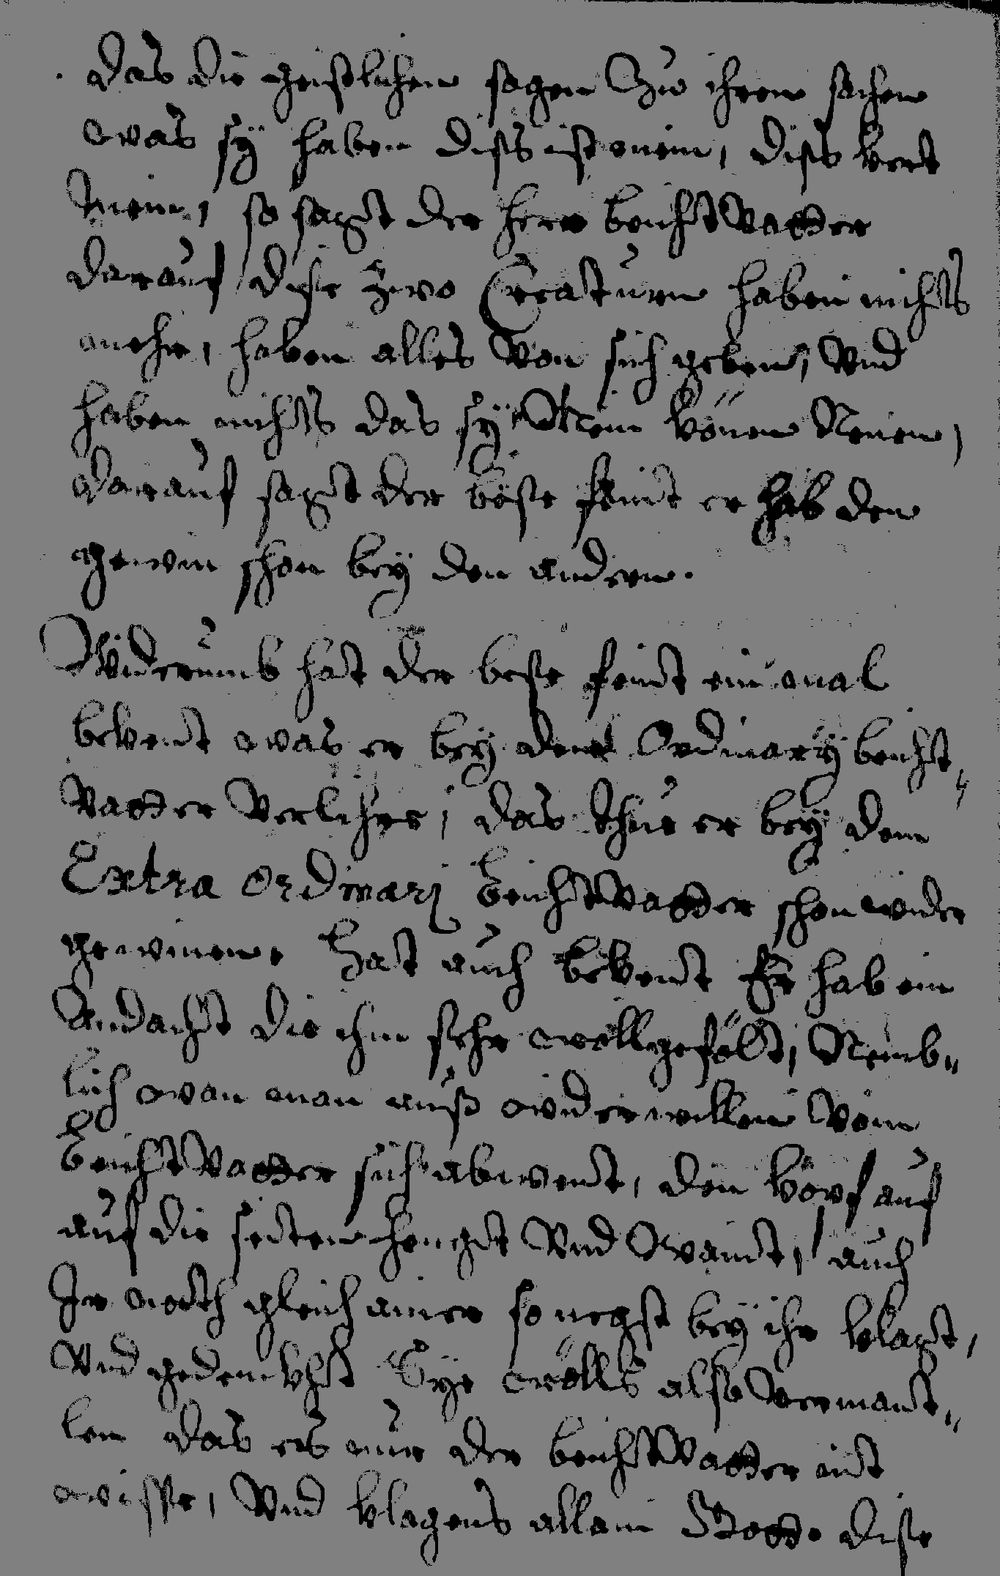 das die geistlichen sagen Zu ihren sachen
was sÿ haben diss ist mein, diss kert
mein, so sagt der herr beichtVatter
darauf dise zwo Creaturen haben nichts
mehr, haben alles Von sich geben, Vnd
haben nichts das sÿ Mein könen Nenen,
darauf sagt der böste feindt er hab den
gewin schon beÿ den andern.
Widerumb hat der beste feindt ein mal
bekent was er beÿ dem Ordinarÿ beicht„
Vatter Verliehre, das thue er beÿ dem
Extra ordinarj beichtVatter schon wider
gewinen. hat auch bekent Er hab ein
Andacht die ihm sehr woll gefölt, Nemb„
lich wan man auß widerwillen Vom
beichtVatter sich abwent, den kopf auf
auf die seiten hengt Vnd Waint, auch
Ir noth gleich einer so negst beÿ ihr klagt,
Vnd gedenkht Sÿe wölls also Vermant„
len das es nur der beichtVatter nit
wisse, Vnd klagens allain Gott. dise